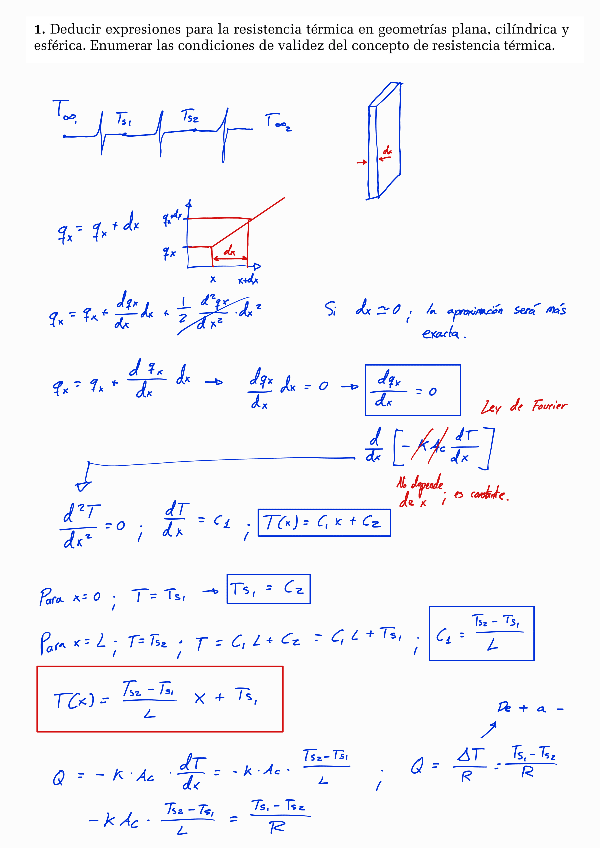 1. Deducir expresiones para la resistencia térmica en geometrías plana, cilíndrica y
esférica. Enumerar las condiciones de validez del concepto de resistencia térmica.
T∞₁ Ts₁ Ts₂ T∞₂
dx
qx = qx + dx
qx+dx
qx
dx
x x+dx
qx = qx + dqx/dx dx + 1/2 d²qx/dx² · dx²
Si dx ≃ 0 ; la aproximación será más
exacta.
qx = qx + dqx/dx dx → dqx/dx dx = 0 → dqx/dx = 0
Ley de Fourier
d/dx [ - K Ac dT/dx ]
No depende
de x ; es constante.
d²T/dx² = 0 ; dT/dx = C1 ; T(x) = C1 x + C2
Para x=0 ; T = Ts₁ → Ts₁ = C2
Para x = L ; T = Ts2 ; T = C1 L + C2 = C1 L + Ts₁ ; C1 = Ts2 - Ts₁/L
T(x) = Ts2 - Ts₁/L x + Ts₁
De + a -
Q = - K · Ac · dT/dx = - K · Ac · Ts2 - Ts1/L ; Q = ΔT/R = Ts₁ - Ts2/R
- K Ac · Ts2 - Ts₁/L = Ts₁ - Ts2/R